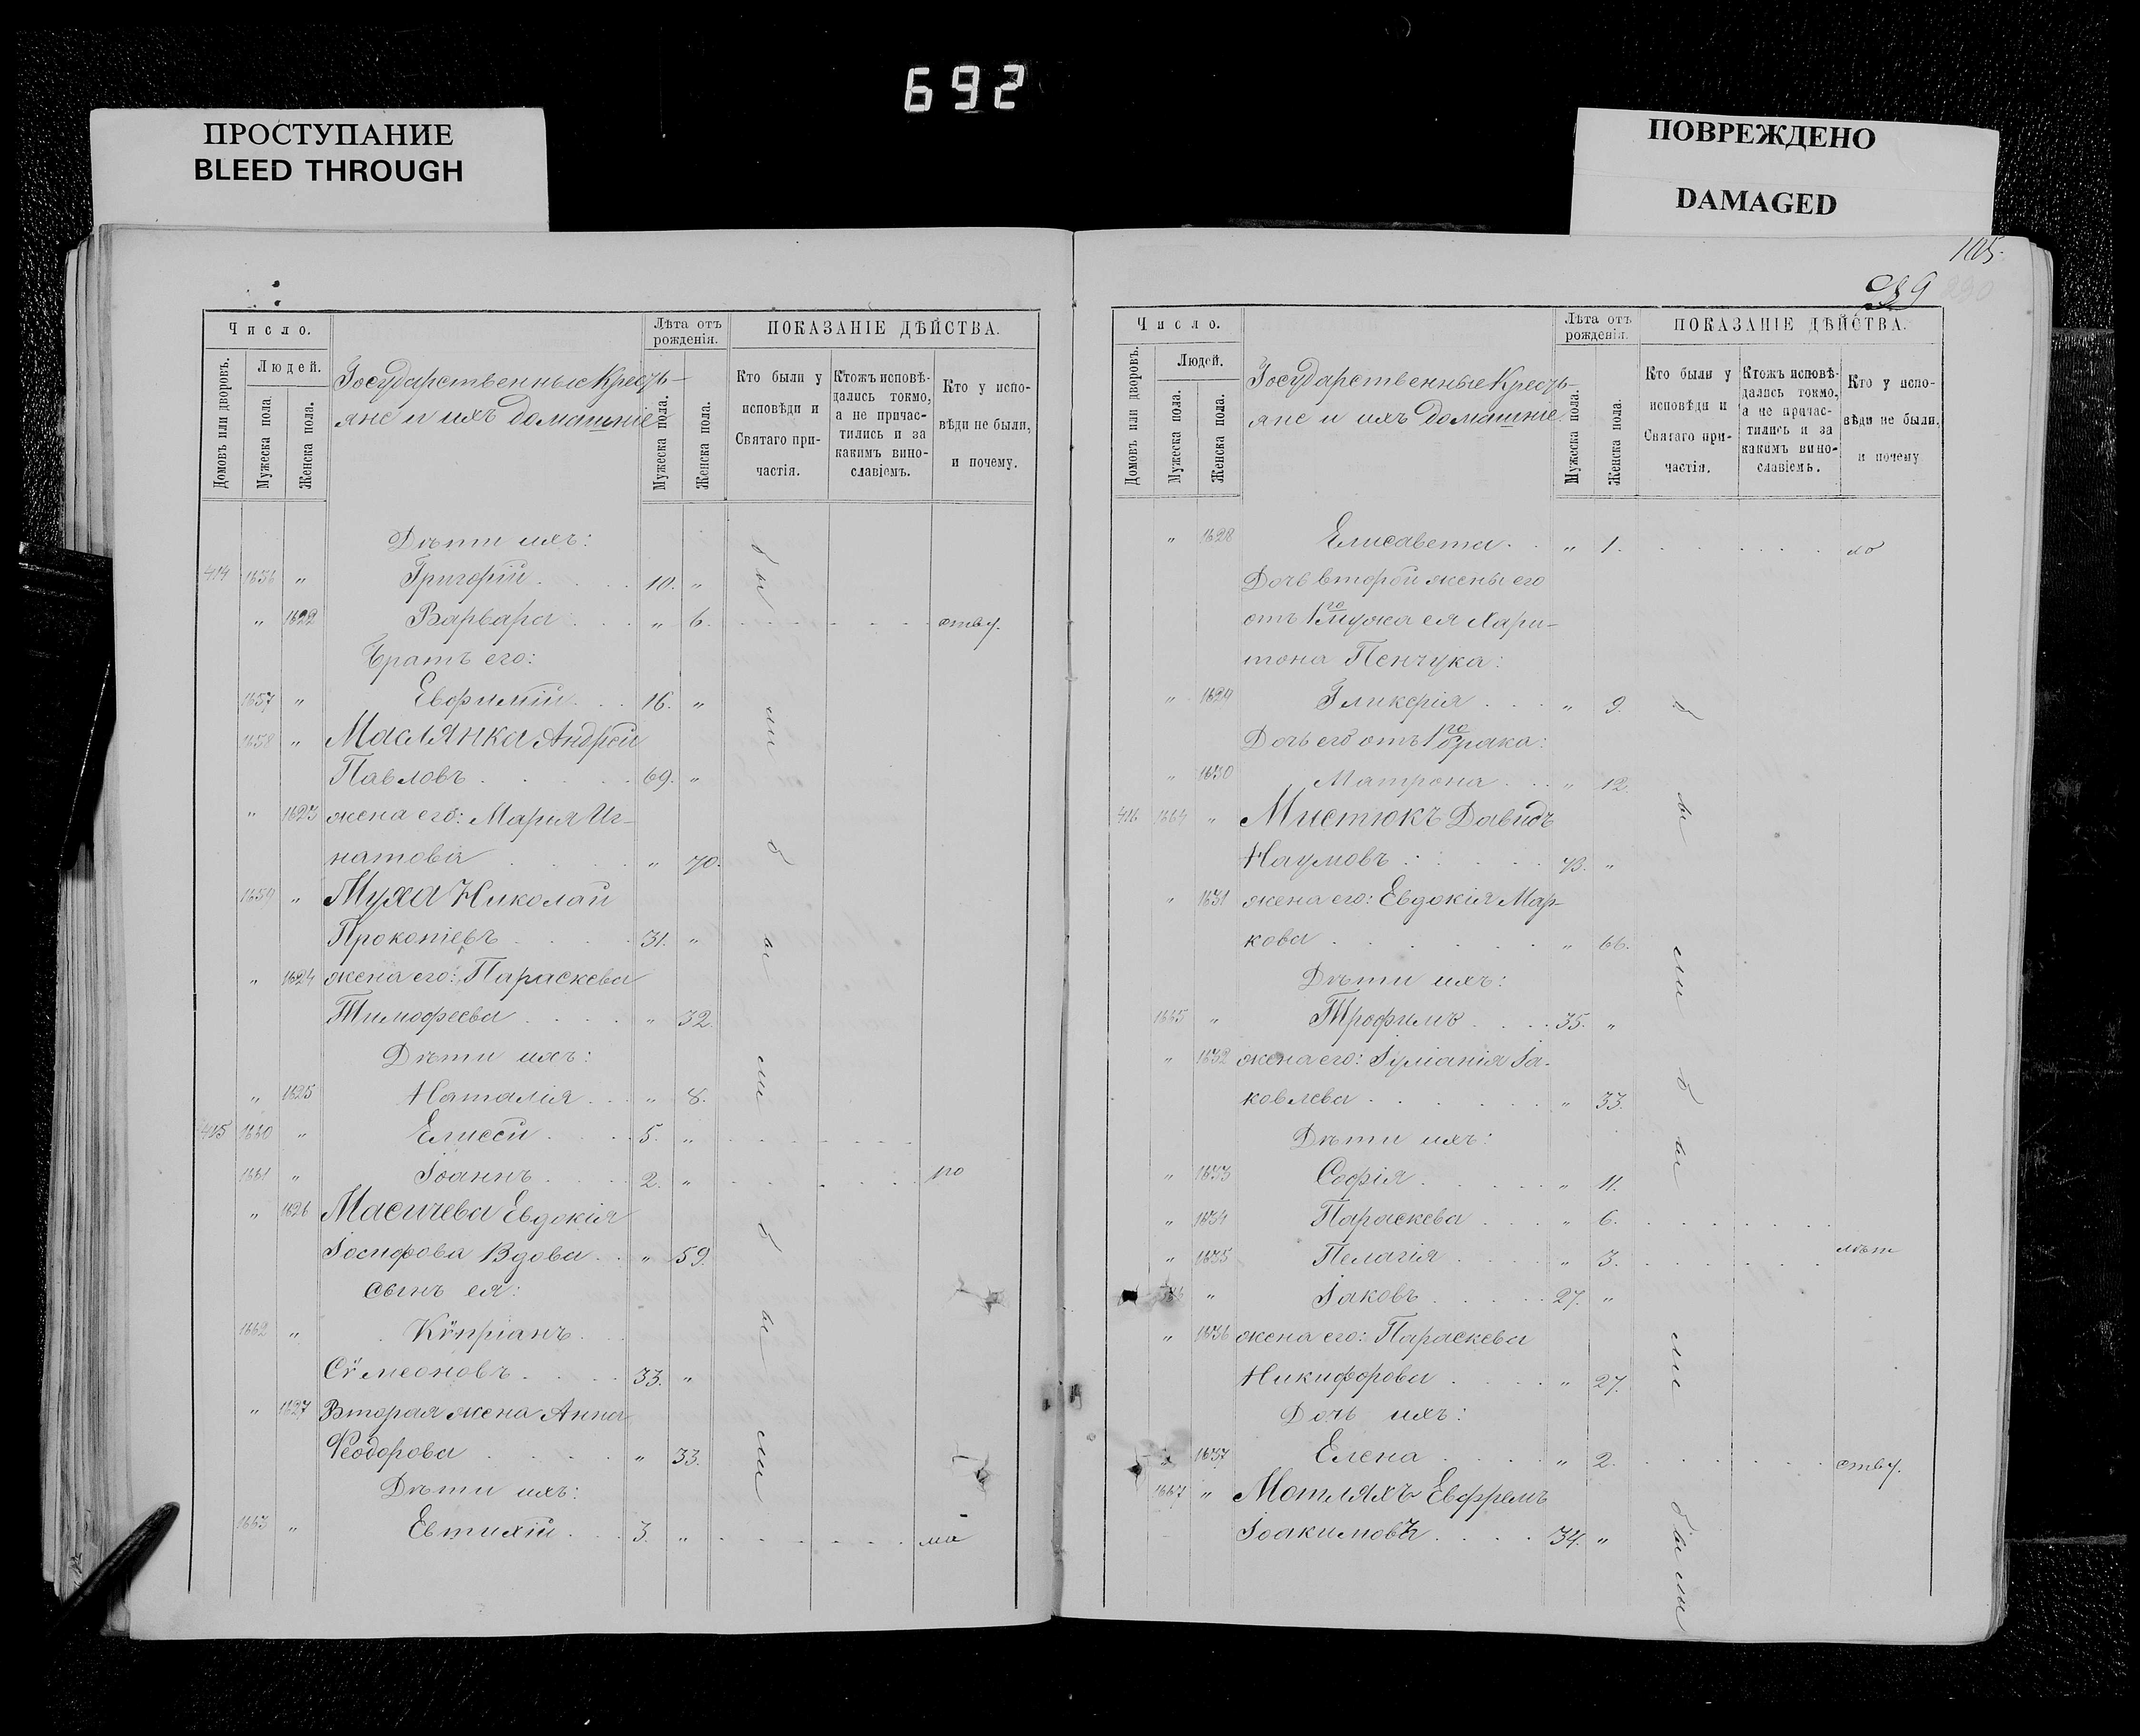 692
ПРОСТУПАНИЕ
BLEED THROUGH
ПОВРЕЖДЕНО
DAMAGED
Число.
Домовъ или дворовъ.
Людей.
Мужеска пола.
Женска пола.
Государственные Кресть-
яне и ихъ домашніе
Лѣта отъ рожденія.
Мужеска пола.
Женска пола.
ПОКАЗАНІЕ ДѢЙСТВА.
Кто были у исповѣди и Святаго при-частія.
Ктожъ исповѣ-дались токмо, а не причас-тились и за какимъ вино-славіемъ.
Кто у испо-вѣди не были, и почему.
Дѣти ихъ:
414 1656 " Григорій . . . 10. "
" 1622 Варвара . . . " 6. ству.
Братъ его:
1657 " Евфимій . . . 16. "
1658 " Маслянка Андрей
Павловъ . . . 69. "
" 1623 жена его: Марія Иг-
натова . . . " 70.
1659 " Муха Николай
Прокопіевъ . . . 31. "
" 1624 жена его: Параскева
Тимофеева . . . " 32.
Дѣти ихъ:
" 1625 Наталія . . . " 8.
415 1660 " Елисей . . . 5. "
1661 " Іоаннъ . . . 2. " по
" 1626 Масичева Евдокія
Іосифова Вдова . . " 59.
сынъ ея:
1662 " Кѵпріанъ.
Сѵмеоновъ . . . 33. "
" 1627 Вторая жена Анна
Ѳеодорова . . . " 33.
Дѣти ихъ:
1663 " Евтихій . . . 3. " ма
были были были
105.
89
Число.
Домовъ или дворовъ.
Людей.
Мужеска пола.
Женска пола.
Государственные Кресть-
яне и ихъ домашніе
Лѣта отъ рожденія.
Мужеска пола.
Женска пола.
ПОКАЗАНІЕ ДѢЙСТВА.
Кто были у исповѣди и Святаго при-частія.
Ктожъ исповѣ-дались токмо, а не причас-тились и за какимъ вино-славіемъ.
Кто у испо-вѣди не были, и почему
" 1628 Елисавета . . " 1. ло
Дочь второй жены его
отъ 1го мужа ея Хари-
тона Пенчука:
" 1629 Гликерія . . . " 9.
Дочь его отъ 1го брака:
" 1630 Матрона . . . " 12.
416 1664 " Мистюкъ Давидъ
Наумовъ . . . 73. "
" 1631 жена его: Евдокія Мар-
кова . . . " 66.
Дѣти ихъ:
1665 " Трофимъ . . . 35. "
" 1632 жена его: Іуліанія Іа-
ковлева . . . " 33.
Дѣти ихъ:
" 1633 Софія . . . " 11.
" 1634 Параскева . . . " 6.
" 1635 Пелагія . . . " 3. лѣт
" Іаковъ . . . 27. "
" 1636 жена его: Параскева
Никифорова . . . " 27.
Дочь ихъ:
" 1637 Елена . . . " 2. ству.
1667 " Мотляхъ Евфремъ
Іоакимовъ . . . 34. "
были были были